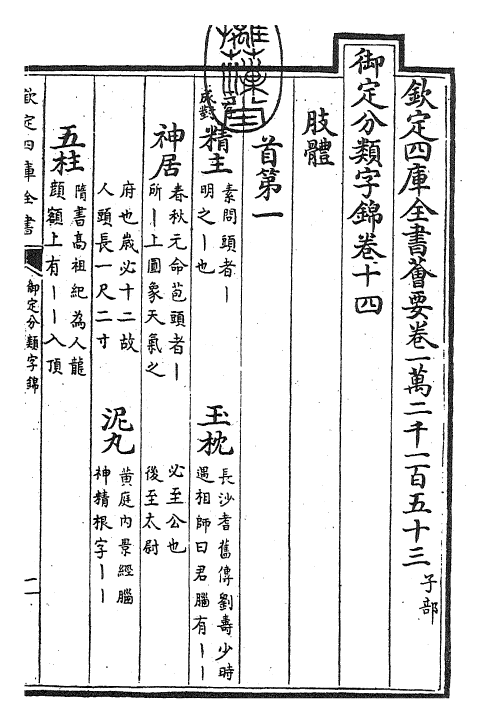 欽定四庫全書薈要卷一萬二千一百五十三 子部
御定分類字錦卷十四
肢體
首第一
成對
精主 素問頭者丨
明之丨也
玉枕 長沙耆舊傳劉壽少時
遇相師曰君腦有丨丨
必至公也
後至太尉
神居 春秋元命苞頭者丨
所丨上圓象天氣之
府也歲必十二故
人頭長一尺二寸
泥丸 黃庭內景經腦
神精根字丨丨
五柱 隋書高祖紀為人龍
顏額上有丨丨入頂
欽定四庫全書
御定分類字錦
一